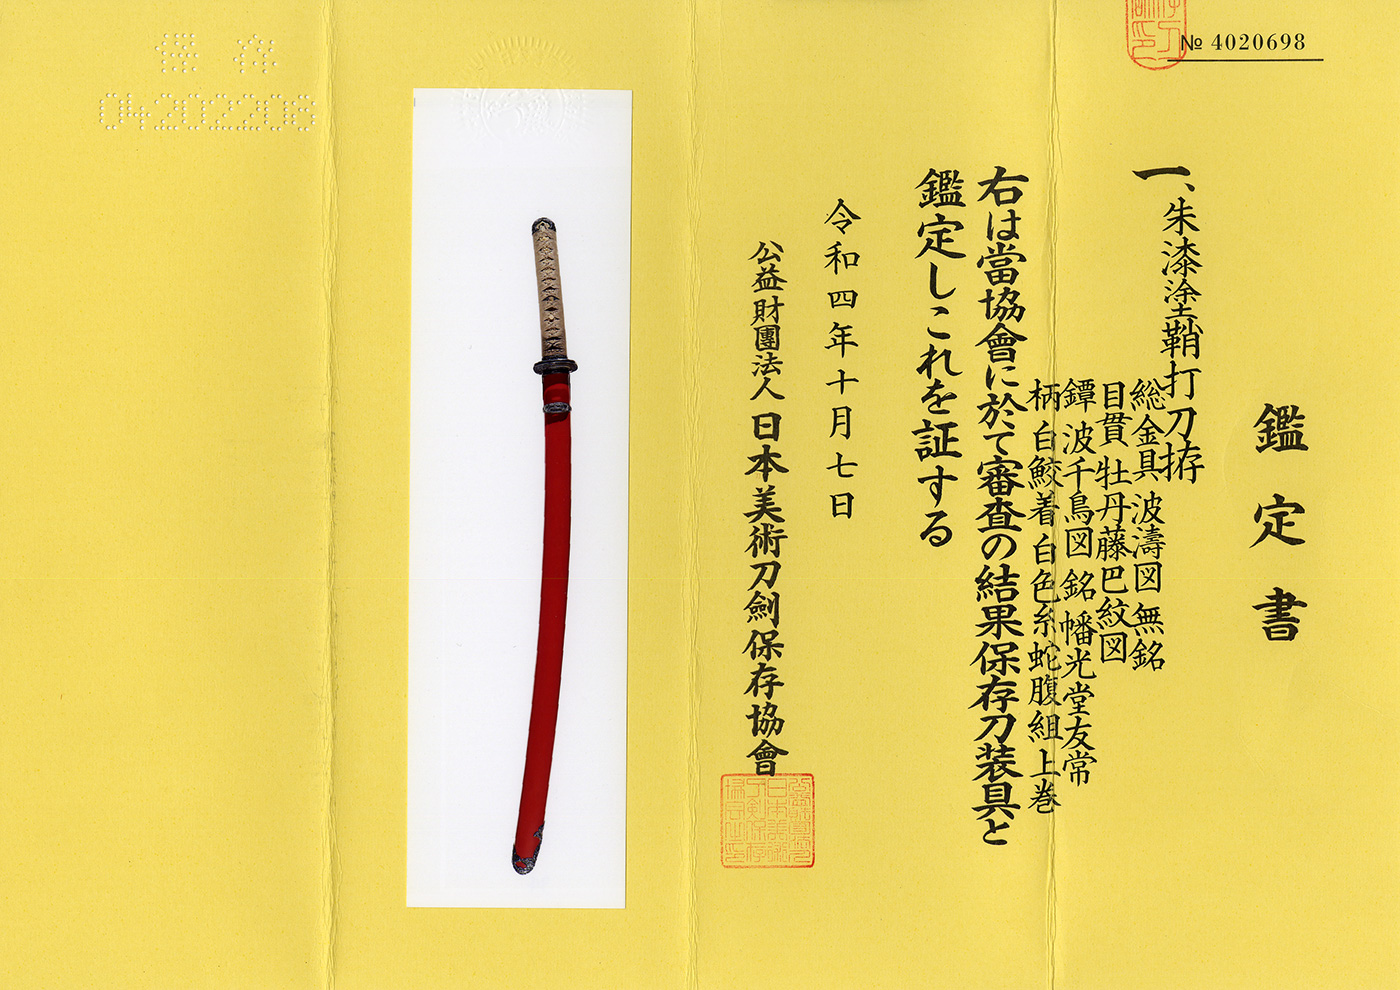 № 4020698
鑑定書
一、朱漆塗鞘打刀拵
総金具 波濤図 無銘
目貫 牡丹藤巴紋図
鐔 波千鳥図 銘 幡光堂友常
柄 白鮫着 白色糸蛇腹組上巻
右は當協會に於て審査の結果保存刀装具と
鑑定しこれを証する
令和四年十月七日
公益財團法人 日本美術刀劍保存協會
保存
04202208